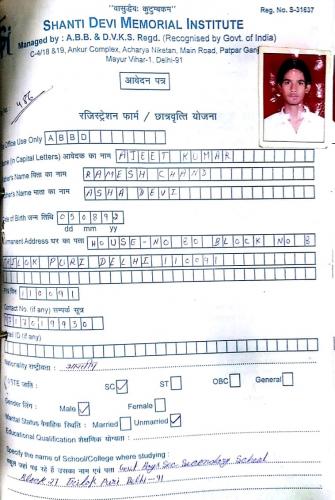 "वासुदेवः कुटुम्बकम्"
Reg. No. S-31637
SHANTI DEVI MEMORIAL INSTITUTE
Managed by : A.B.B. & D.V.K.S. Regd. (Recognised by Govt. of India)
C-4/18 &19, Ankur Complex, Acharya Niketan, Main Road, Patpar Ganj
Mayur Vihar-1. Delhi-91
आवेदन पत्र
No. 486
रजिस्ट्रेशन फार्म / छात्रवृत्ति योजना
Office Use Only ABBD
(In Capital Letters) आवेदक का नाम AJEET KUMAR
Name पिता का नाम RAMESH CHAND
Name माता का नाम ASHA DEVI
of Birth जन्म तिथि 050892
dd mm yy
Permanent Address घर का पता HOUSE-NO 20 BLOCK NO
PURI DELHI 110091
110091
Contact No. (if any) सम्पर्क सूत्र
ID (if any)
Nationality राष्ट्रीयता : भारतीय
जाति : SC ✓ ST OBC General
Gender लिंग : Male ✓ Female
Marital Status वैवाहिक स्थिति : Married Unmarried ✓
Educational Qualification शैक्षणिक योग्यता :
Specify the name of School/College where studying :
पढ़ रहे हैं उसका नाम एवं पता Govt Boys Sec Secondary School
Block 27 Trilok Puri Delhi-91